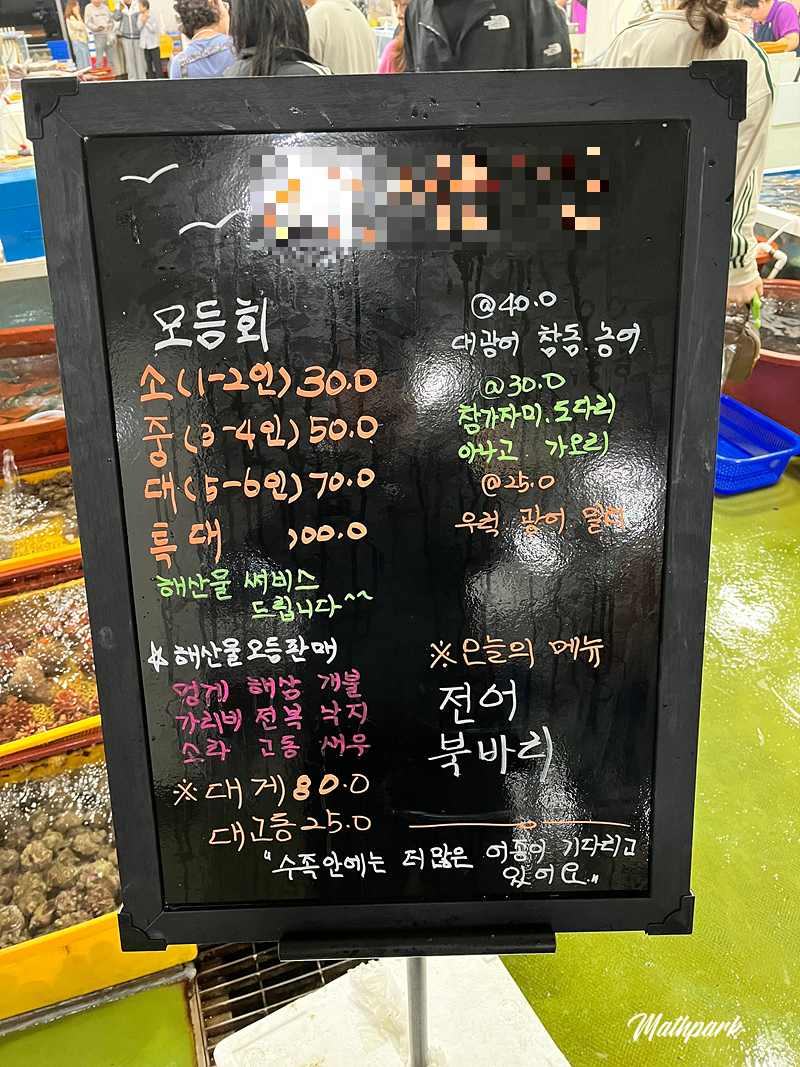 모듬회
소(1-2인)30.0
중(3-4인)50.0
대(5-6인)70.0
특대 100.0
해산물 써비스
드립니다^^
@40.0
대광어 참돔.농어
@30.0
참가자미.도다리
아나고. 가오리
@25.0
우럭. 광어 밀치
☆해산물모듬판매
멍게 해삼 개불
가리비 전복 낙지
소라 고동 새우
※대게80.0
대고동25.0
※오늘의 메뉴
전어
북바리
"수족안에는 더많은 어종이 기다리고
있어요."
THE NORTH FACE
Mathpark